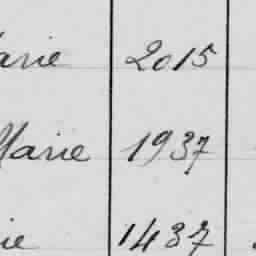 arie 2015
Marie 1937
ie 1437